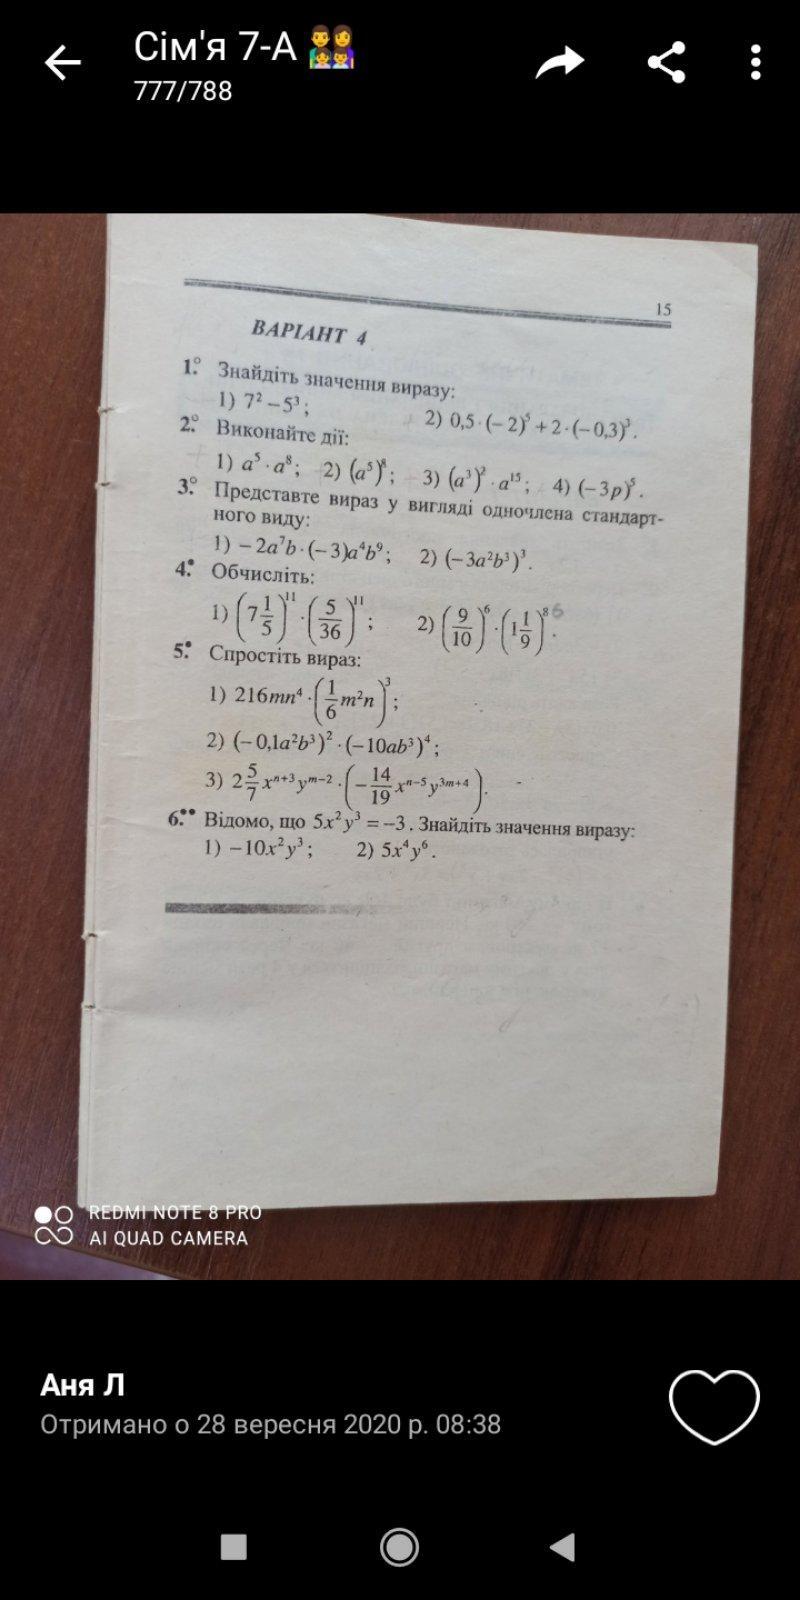 Сім'я 7-А 👨‍👩‍👧‍👦
777/788
15
ВАРІАНТ 4
1.° Знайдіть значення виразу:
1) 7² – 5³; 2) 0,5 · (– 2)⁵ + 2 · (– 0,3)³.
2.° Виконайте дії:
1) a⁵ · a⁸; 2) (a⁵)⁸; 3) (a³)² · a¹⁵; 4) (–3p)⁵.
3.° Представте вираз у вигляді одночлена стандарт-
ного виду:
1) – 2a⁷b · (– 3)a⁴b⁹; 2) (– 3a²b³)³.
4.• Обчисліть:
1) (7 1/5)¹¹ · (5/36)¹¹; 2) (9/10)⁶ · (1 1/9)⁸ 6.
5.• Спростіть вираз:
1) 216mn⁴ · (1/6 m²n)³;
2) (– 0,1a²b³)² · (– 10ab³)⁴;
3) 2 5/7 xⁿ⁺³yᵐ⁻² · (– 14/19 xⁿ⁻⁵y³ᵐ⁺⁴).
6.•• Відомо, що 5x²y³ = –3. Знайдіть значення виразу:
1) –10x²y³; 2) 5x⁴y⁶.
REDMI NOTE 8 PRO
AI QUAD CAMERA
Аня Л
Отримано о 28 вересня 2020 р. 08:38